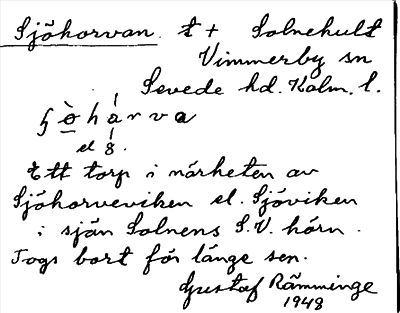 Sjöhorvan. t + Solnehult
Vimmerby sn
Sevede hd. Kalm. l.
ɧ ò h á r v a
el 8.
Ett torp i närheten av
Sjöhorveviken el. Sjöviken
i sjön Solnens S.V. hörn.
Togs bort för länge sen.
Gustaf Rämminge
1948